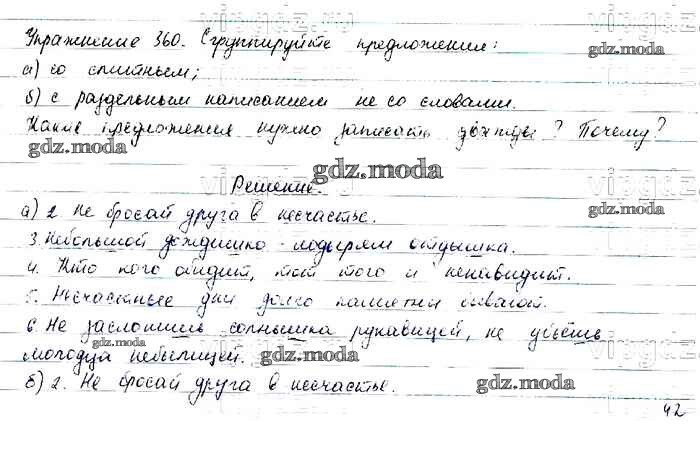 Упражнение 360. Сгруппируйте предложения:
а) со слитным;
б) с раздельным написанием не со словами.
Какие предложения нужно записать дважды? Почему?
Решение.
а) 2. Не бросай друга в несчастье.
3. Небольшой дождишко - лодырям отдышка.
4. Кто кого обидит, тот того и ненавидит.
5. Несчастные дни долго памятны бывают.
6. Не заслонишь солнышка рукавицей, не убьёшь
молодца небылицей.
б) 2. Не бросай друга в несчастье.
42
vipgdz.ru
gdz.moda